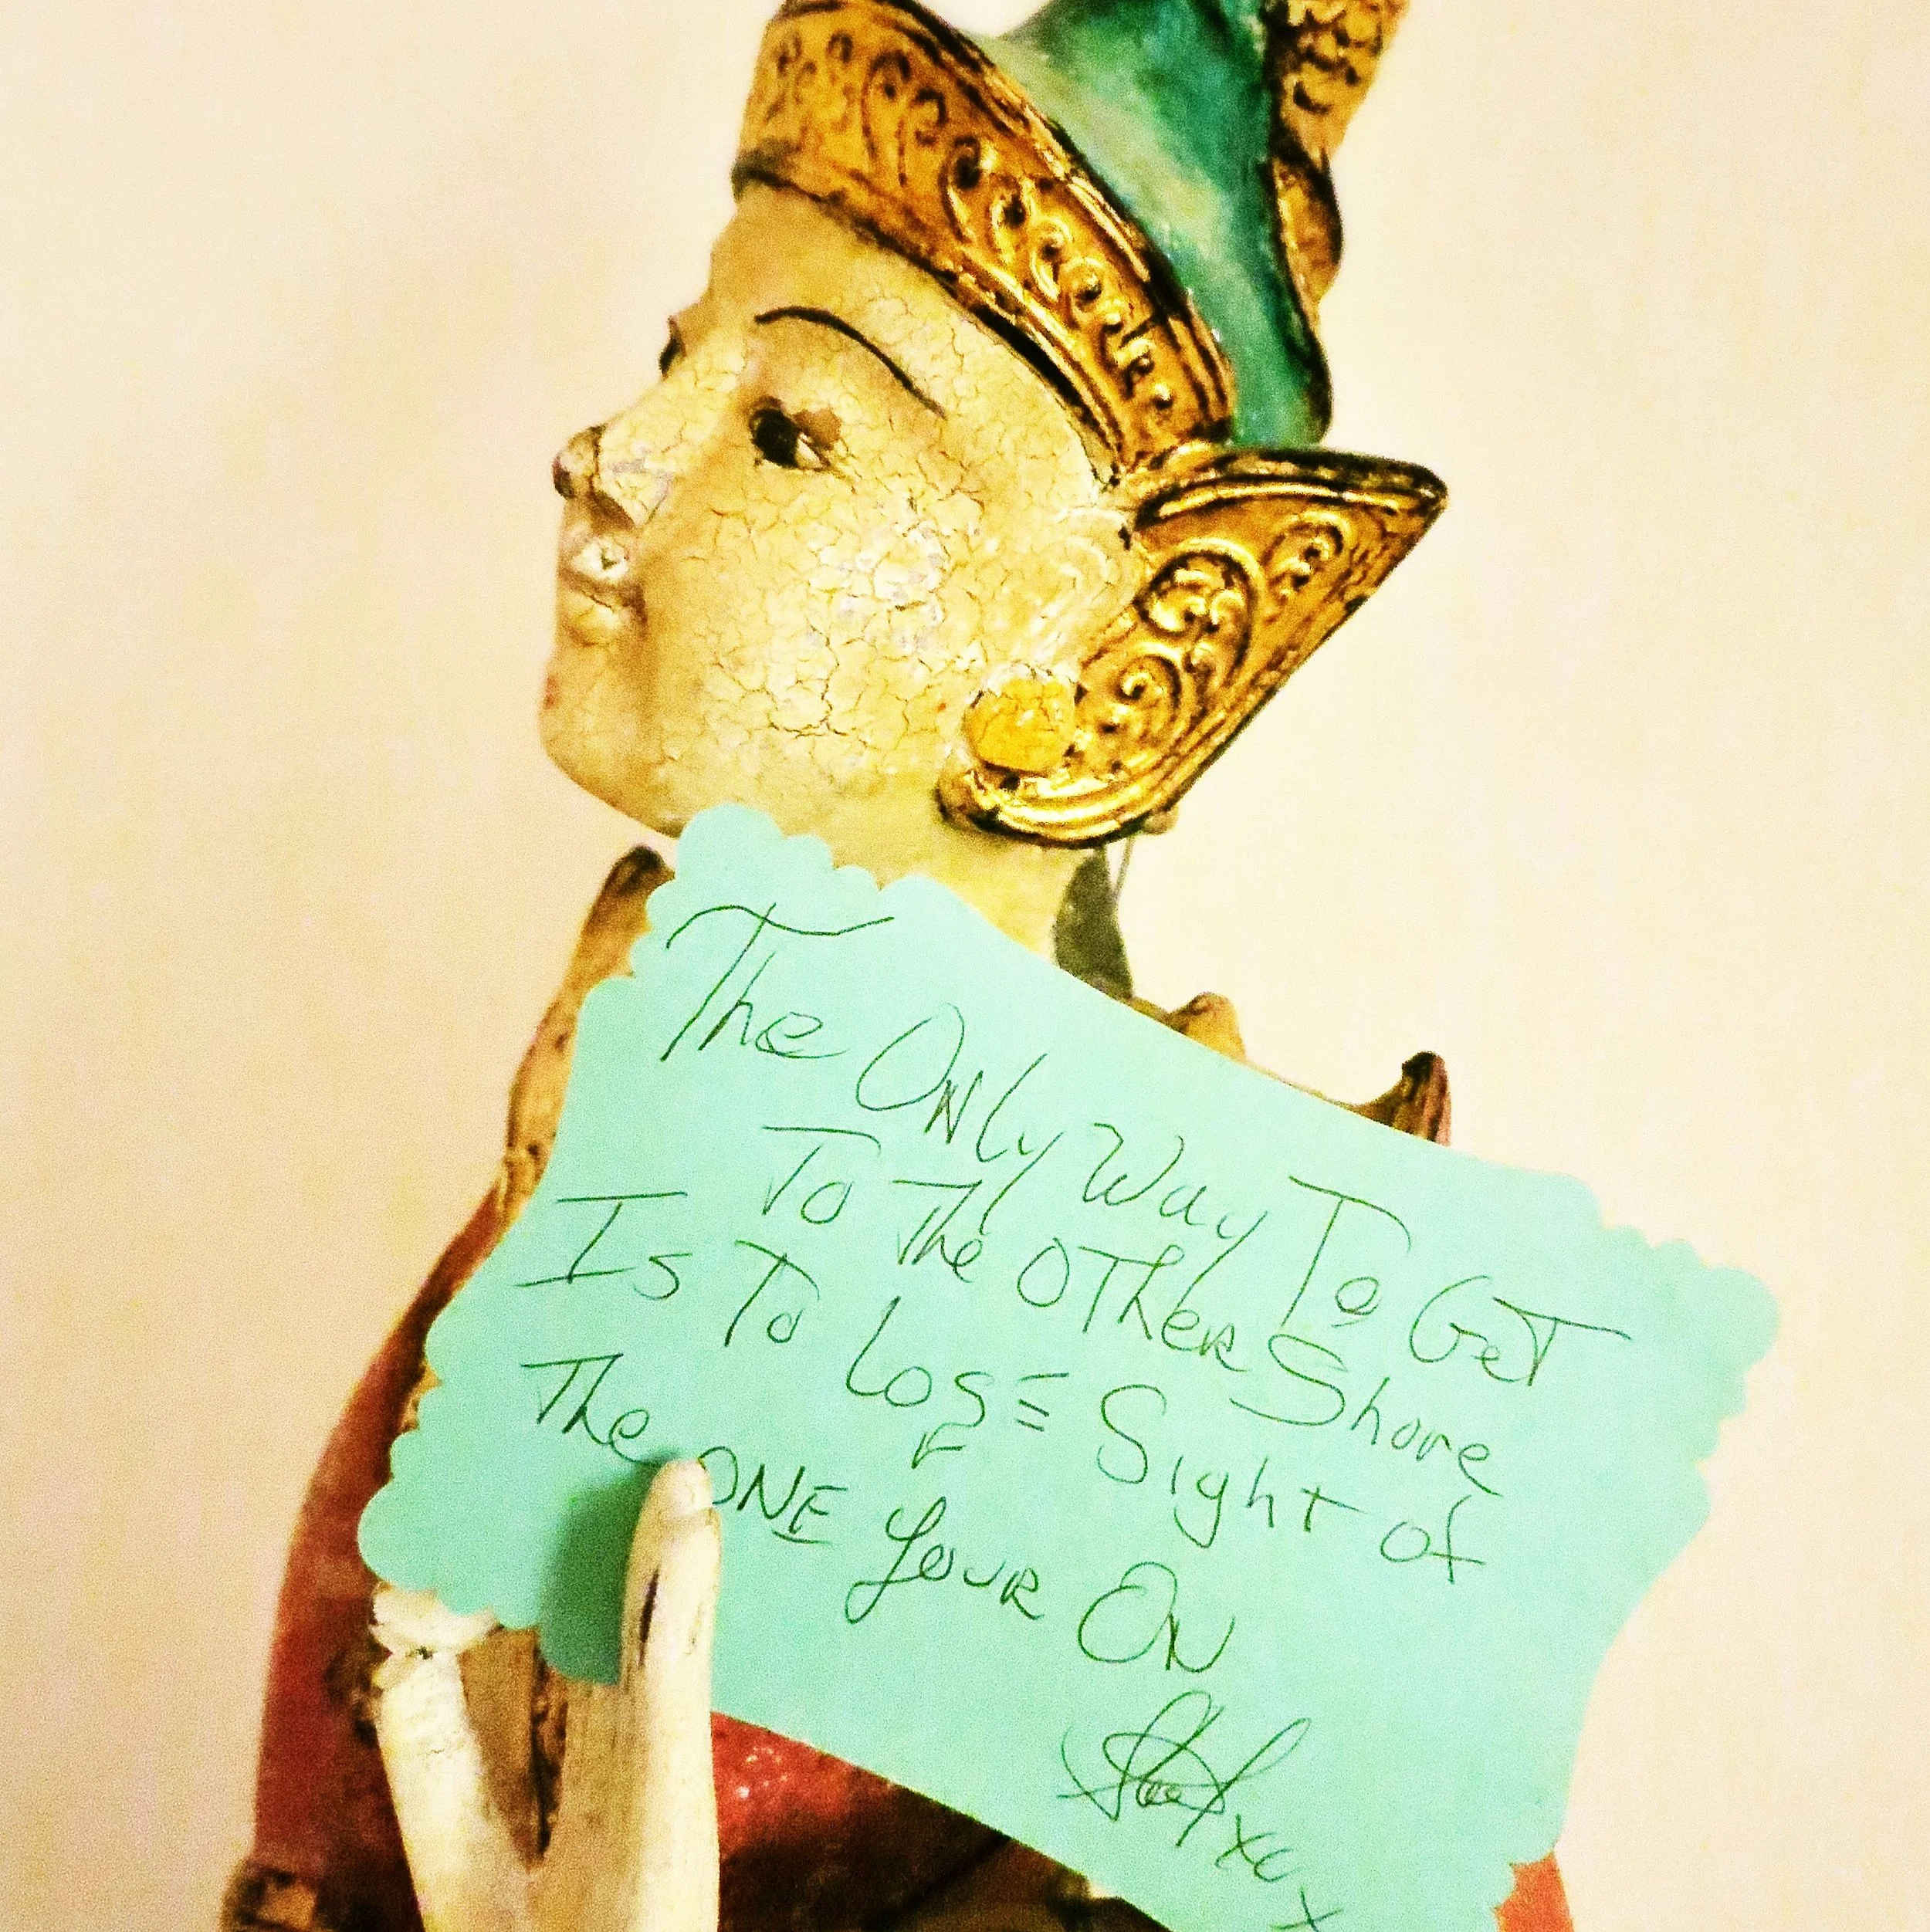 The Only Way To Get
To The Other Shore
Is To Lose Sight of
The ONE Your On